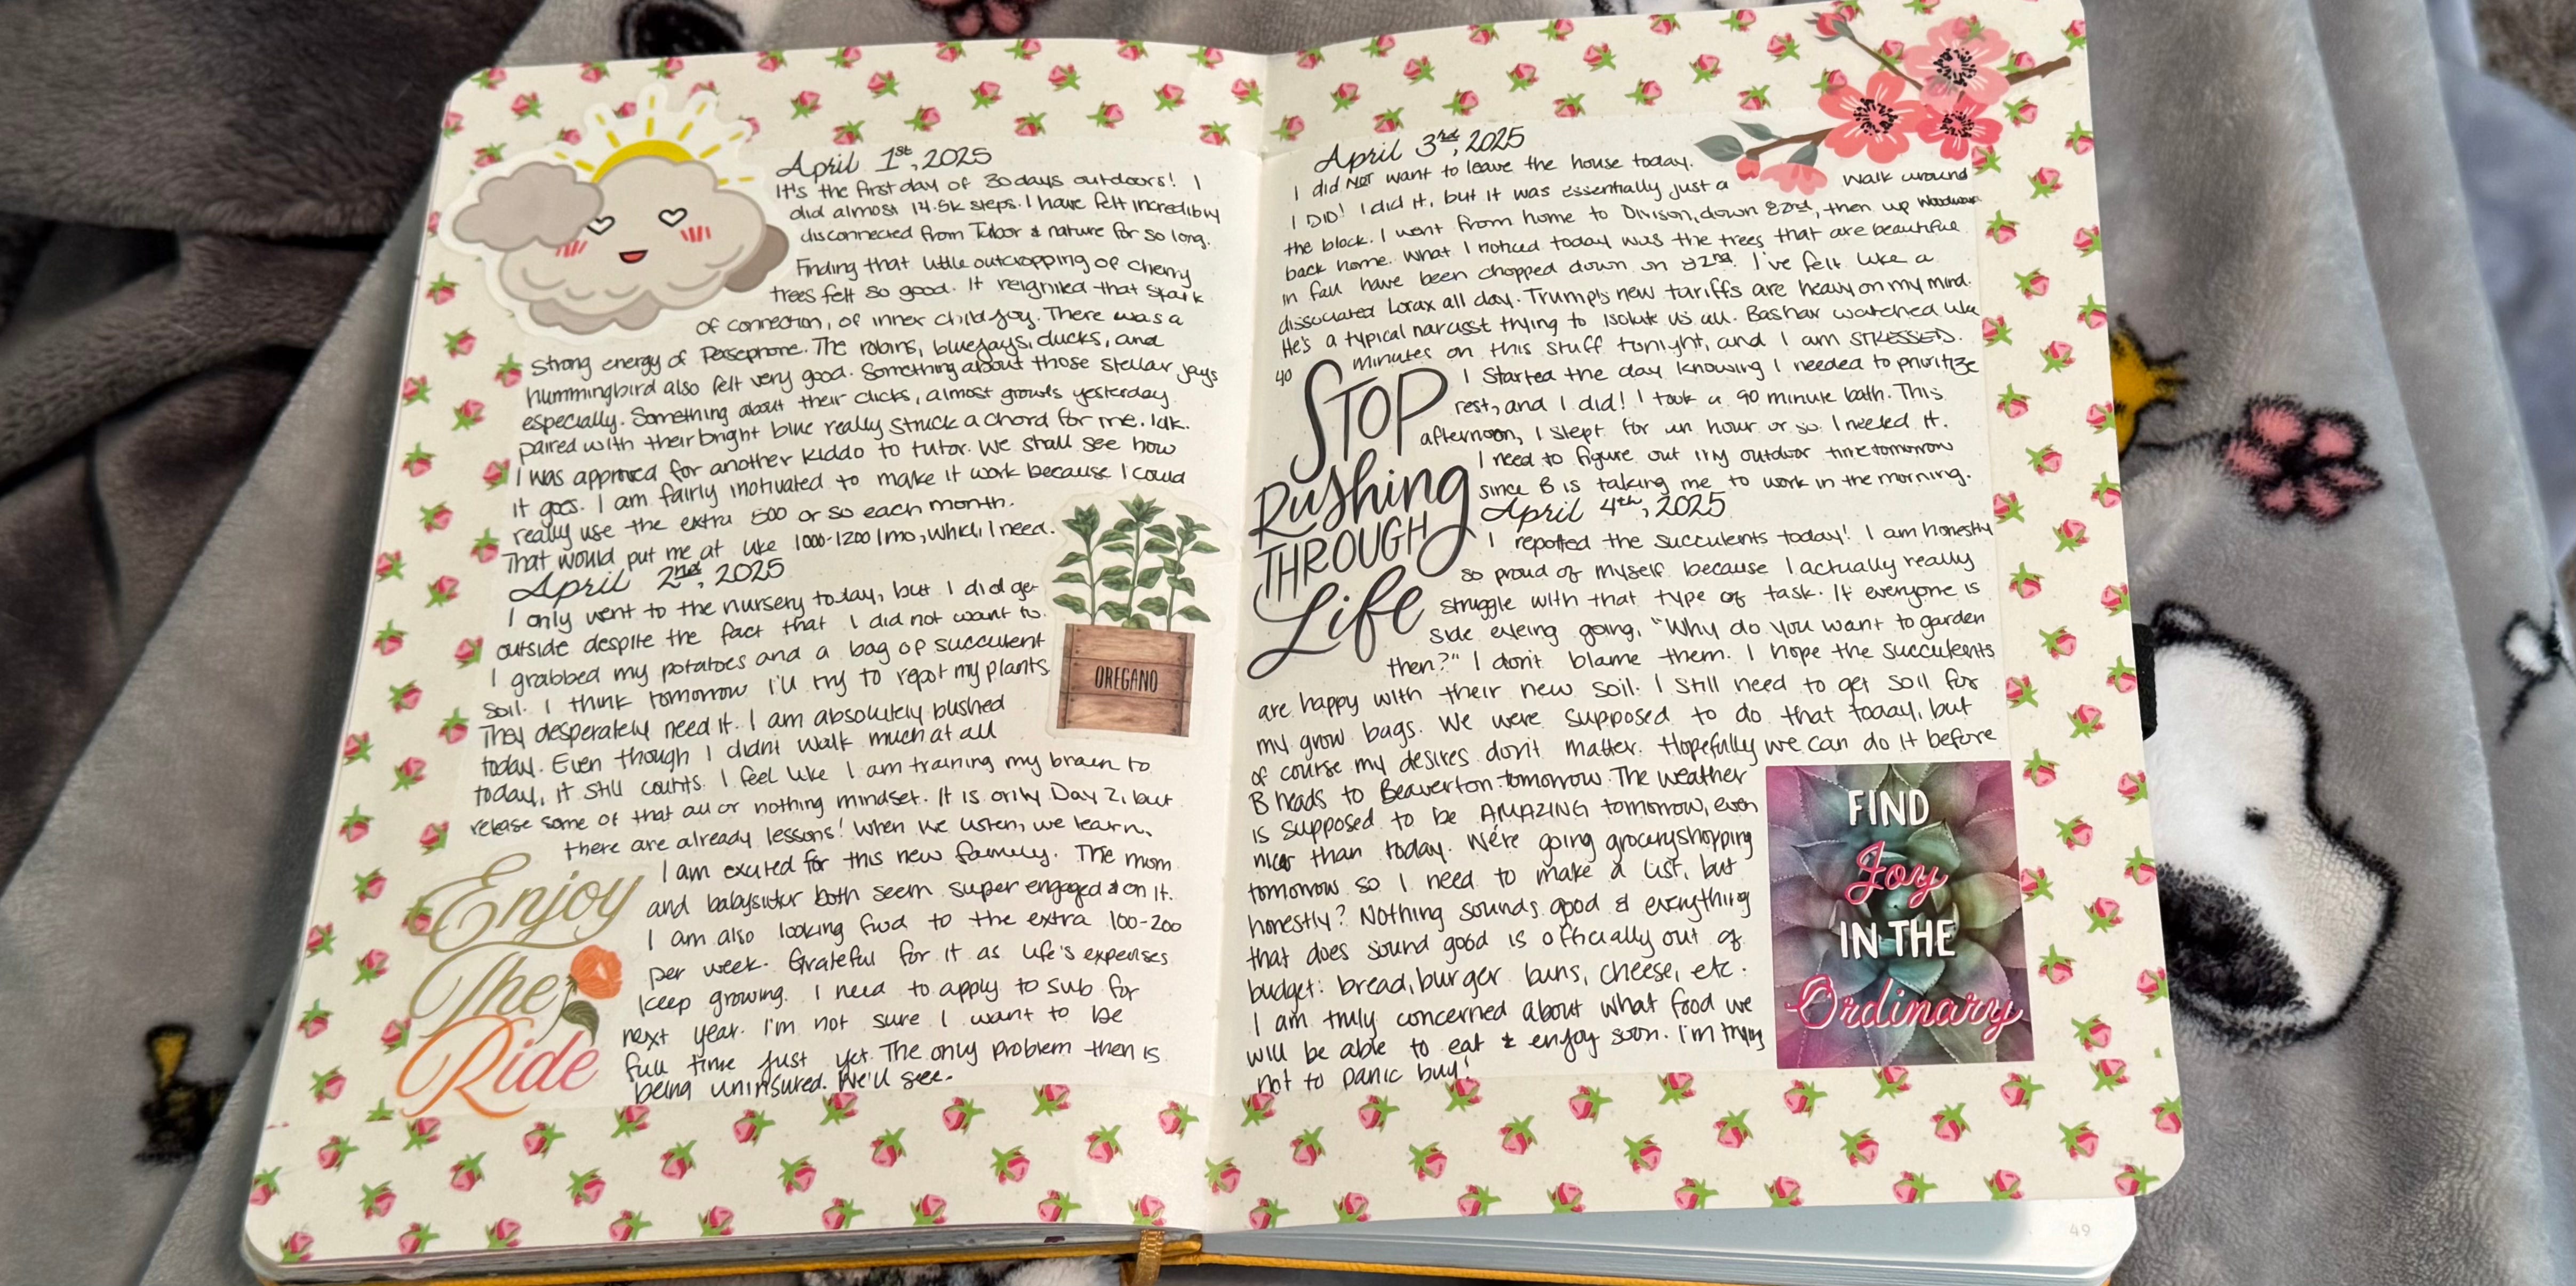 April 1st, 2025
It's the first day of 30 days outdoors! I
did almost 14.5k steps. I have felt incredibly
disconnected from Tabor & nature for so long.
Finding that little outcropping of cherry
trees felt so good. It reignited that spark
of connection, of inner child joy. There was a
strong energy of Persephone. The robins, bluejays, ducks, and
hummingbird also felt very good. Something about those stellar jays
especially. Something about their clicks, almost growls yesterday
paired with their bright blue really struck a chord for me. Idk.
I was approved for another kiddo to tutor. We shall see how
it goes. I am fairly motivated to make it work because I could
really use the extra 500 or so each month.
That would put me at like 1000-1200/mo, which I need.
April 2nd, 2025
I only went to the nursery today, but I did get
outside despite the fact that I did not want to.
I grabbed my potatoes and a bag of succulent
soil. I think tomorrow I'll try to repot my plants.
They desperately need it. I am absolutely bushed
today. Even though I didn't walk much at all
today, it still counts. I feel like I am training my brain to
release some of that all or nothing mindset. It is only Day 2, but
there are already lessons! When we listen, we learn.
I am excited for this new family. The mom
and babysitter both seem super engaged & on it.
I am also looking fwd to the extra 100-200
per week. Grateful for it as life's expenses
keep growing. I need to apply to sub for
next year. I'm not sure I want to be
full time just yet. The only problem then is
being uninsured. We'll see.
OREGANO
Enjoy
The
Ride
April 3rd, 2025
I did NOT want to leave the house today.
I DID! I did it, but it was essentially just a walk around
the block. I went from home to Divison, down 82nd, then up Woodward
back home. What I noticed today was the trees that are beautiful
in fall have been chopped down on 82nd. I've felt like a
dissociated Lorax all day. Trump's new tariffs are heavy on my mind.
He's a typical narcisst trying to isolate us all. Bashar watched like
40 minutes on this stuff tonight, and I am STRESSED.
I started the day knowing I needed to prioritize
rest, and I did! I took a 90 minute bath. This
afternoon, I slept for an hour or so. I needed it.
I need to figure out my outdoor time tomorrow
since B is taking me to work in the morning.
STOP
Rushing
THROUGH
Life
April 4th, 2025
I repotted the succulents today! I am honestly
so proud of myself because I actually really
struggle with that type of task. If everyone is
side eyeing going, "Why do you want to garden
then?" I don't blame them. I hope the succulents
are happy with their new soil. I still need to get soil for
my grow bags. We were supposed to do that today, but
of course my desires don't matter. Hopefully we can do it before
B heads to Beaverton tomorrow. The weather
is supposed to be AMAZING tomorrow, even
nicer than today. We're going grocery shopping
tomorrow so I need to make a list, but
honestly? Nothing sounds good & everything
that does sound good is officially out of
budget: bread, burger buns, cheese, etc.
I am truly concerned about what food we
will be able to eat & enjoy soon. I'm trying
not to panic buy!
FIND
Joy
IN THE
Ordinary
49